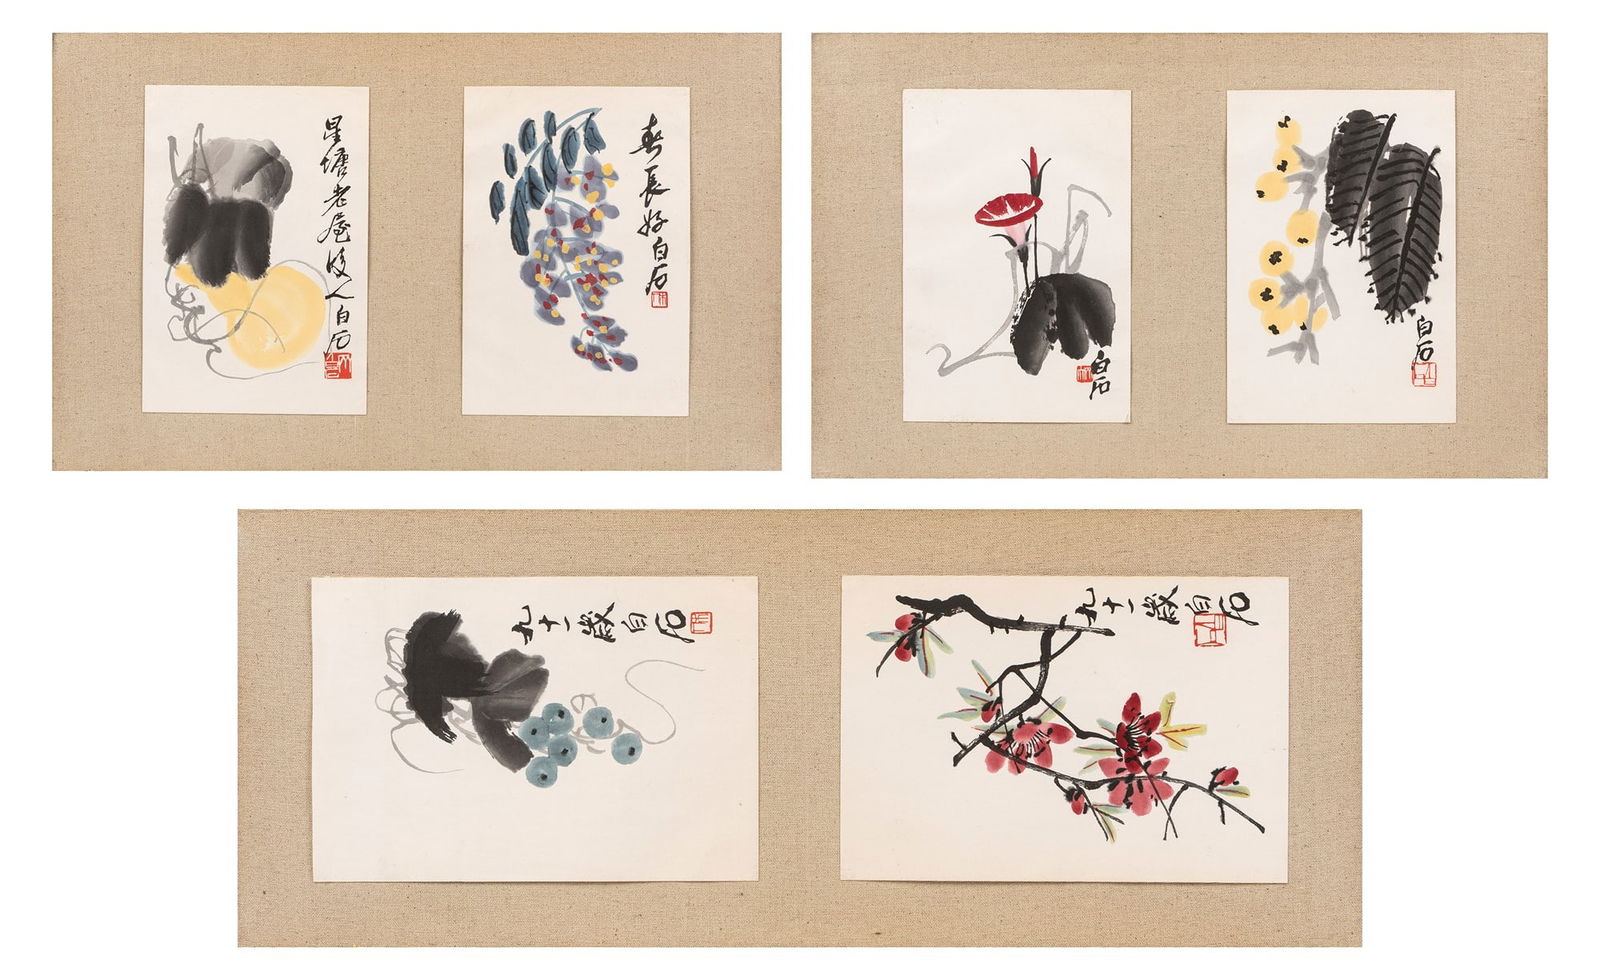 星塘老屋後人白石
春長好白石
白石
白石
九十一歲白石
九十一歲白石